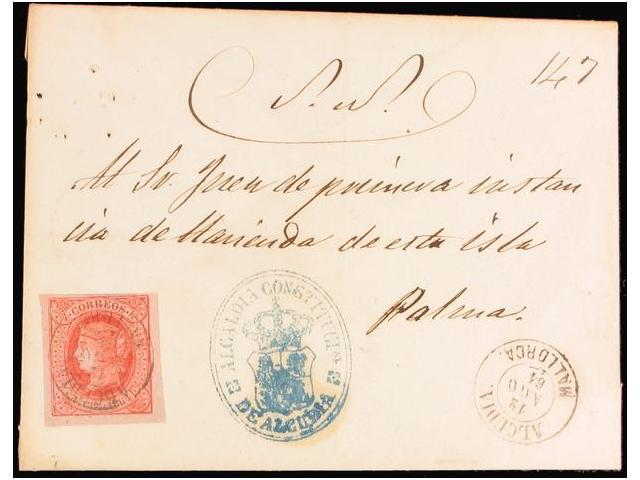 147
S. N.
Al Sr. Juez de primera instan
cia de Hacienda de esta isla
Palma.
CORREOS
ALCALDIA CONSTITUCL.
DE ALCUDIA
ALCUDIA
12
AGO
64
MALLORCA.